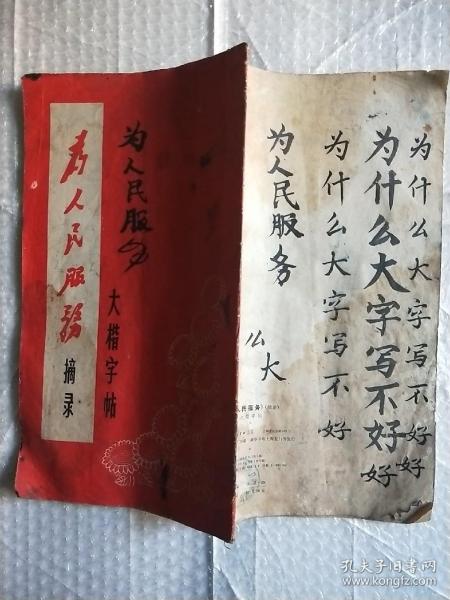 为人民服務
摘录
为人民服务
大楷字帖
为人民服务
么
大
为什么大字写不好
为什么大字写不好
好
为什么大字写不好
好
孔夫子旧书网
www.kongfz.com